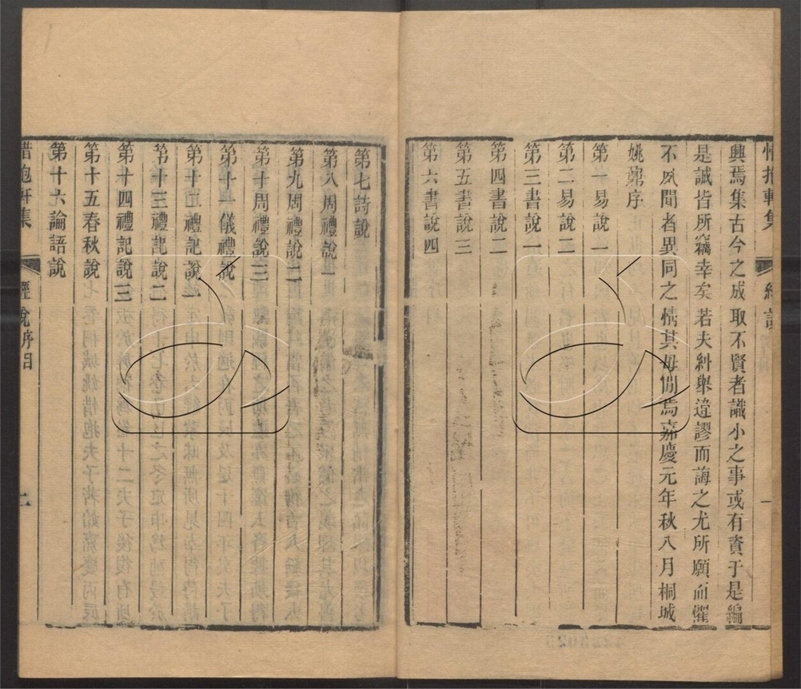 惜抱軒集 經說 一
興焉集古今之成取不賢者識小之事或有資于是編
是誠皆所竊幸矣若夫糾舉違謬而誨之尤所願而懼
不夙聞者異同之情其毋閒焉嘉慶元年秋八月桐城
姚鼐序
第一易說一
第二易說二
第三書說一
第四書說二
第五書說三
第六書說四
第七詩說
第八周禮說一
第九周禮說二
第十周禮說三
第十一儀禮說
第十二禮記說一
第十三禮記說二
第十四禮記說三
第十五春秋說
第十六論語說
惜抱軒集 經說序目 二